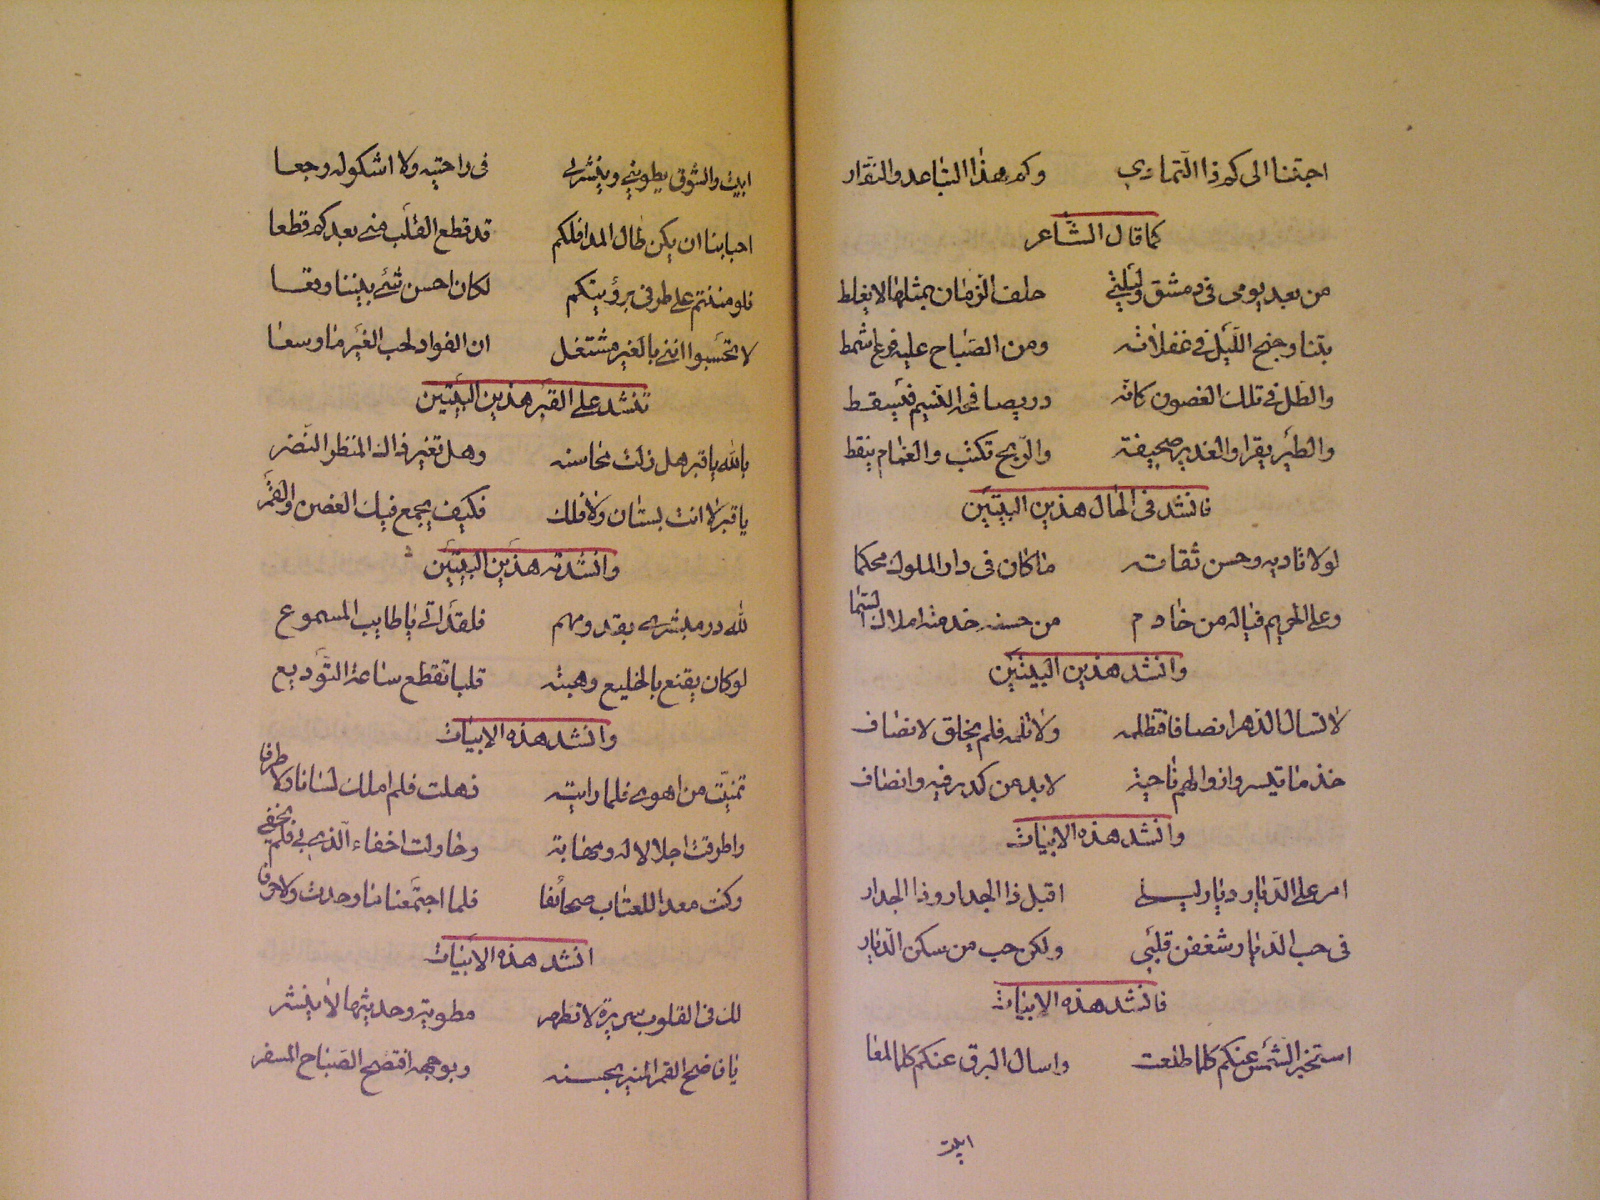 اجتنا الى كم ذا التمادي وكم هذا التباعد والنقار
كما قال الشاعر
من بعد يومى فى دمشق وليلتي حلف الزمان بمثلها لا يغلط
بتنا وجنح الليل في غفلاته ومن الصباح عليه فرع اشمط
والطل في تلك الغصون كانه در يصافحه النسيم فيسقط
والطير يقرا والغدير صحيفة والريح تكتب والغمام ينقط
فانشد فى الحال هذين البيتين
لولا تاديه وحسن ثقاته ما كان فى دار الملوك محكما
وعلى الحريم فياله من خادم من حسنه خدمته املاك السما
وانشد هذين البيتين
لا تسال الدهر انصافا فتظلمه ولا تلمه فلم يخلق لانصاف
خذ ما تيسر وازو الهم ناحية لا بد من كدر فيه وانصاف
وانشد هذه الابيات
امر على الديار ديار ليلى اقبل ذا الجدار وذا الجدار
فى حب الديار شغفن قلبي ولكن حب من سكن الديار
فانشد هذه الابيات
استخبر الشمس عنكم كلما طلعت واسال البرق عنكم كلما لمعا
ابيت
ابيت والشوق يطويني وينشرلى فى راحتيه ولا اشكو له وجعا
احبابنا ان يكن طال المدا فلكم قد قطع القلب منى بعدكم قطعا
فلو مننتم على طرفى برؤيتكم لكان احسن شئ بيننا وقعا
لا تحسبوا انني بالغير مشتغل ان الفواد لحب الغير ما وسعا
تنشد على القبر هذين البيتين
بالله يا قبر هل زلت محاسنه وهل تغير ذاك المنظر النضر
يا قبر لا انت بستان ولا فلك فكيف يجمع فيك الغصن والقمر
وانشدته هذين البيتين
لله در مبشرى بقدومهم فلقد اتى يا طايب المسموع
لو كان يقنع بالخليع وهبته قلبا تقطع ساعة التوديع
وانشد هذه الابيات
تمنيت من اهوى فلما رايته ذهلت فلم املك لسانا ولا طرفا
واطرقت اجلالا له ومهابة وحاولت اخفاء الذى بى فلم يخفى
وكنت معدا للعتاب صحائفا فلما اجتمعنا ما وجدت ولا حرفا
انشد هذه الابيات
لك فى القلوب سريرة لا تظهر مطوية وحديثها لا ينشر
يا فاضح القمر المنير بحسنه وبوجهه افتضح الصباح المسفر